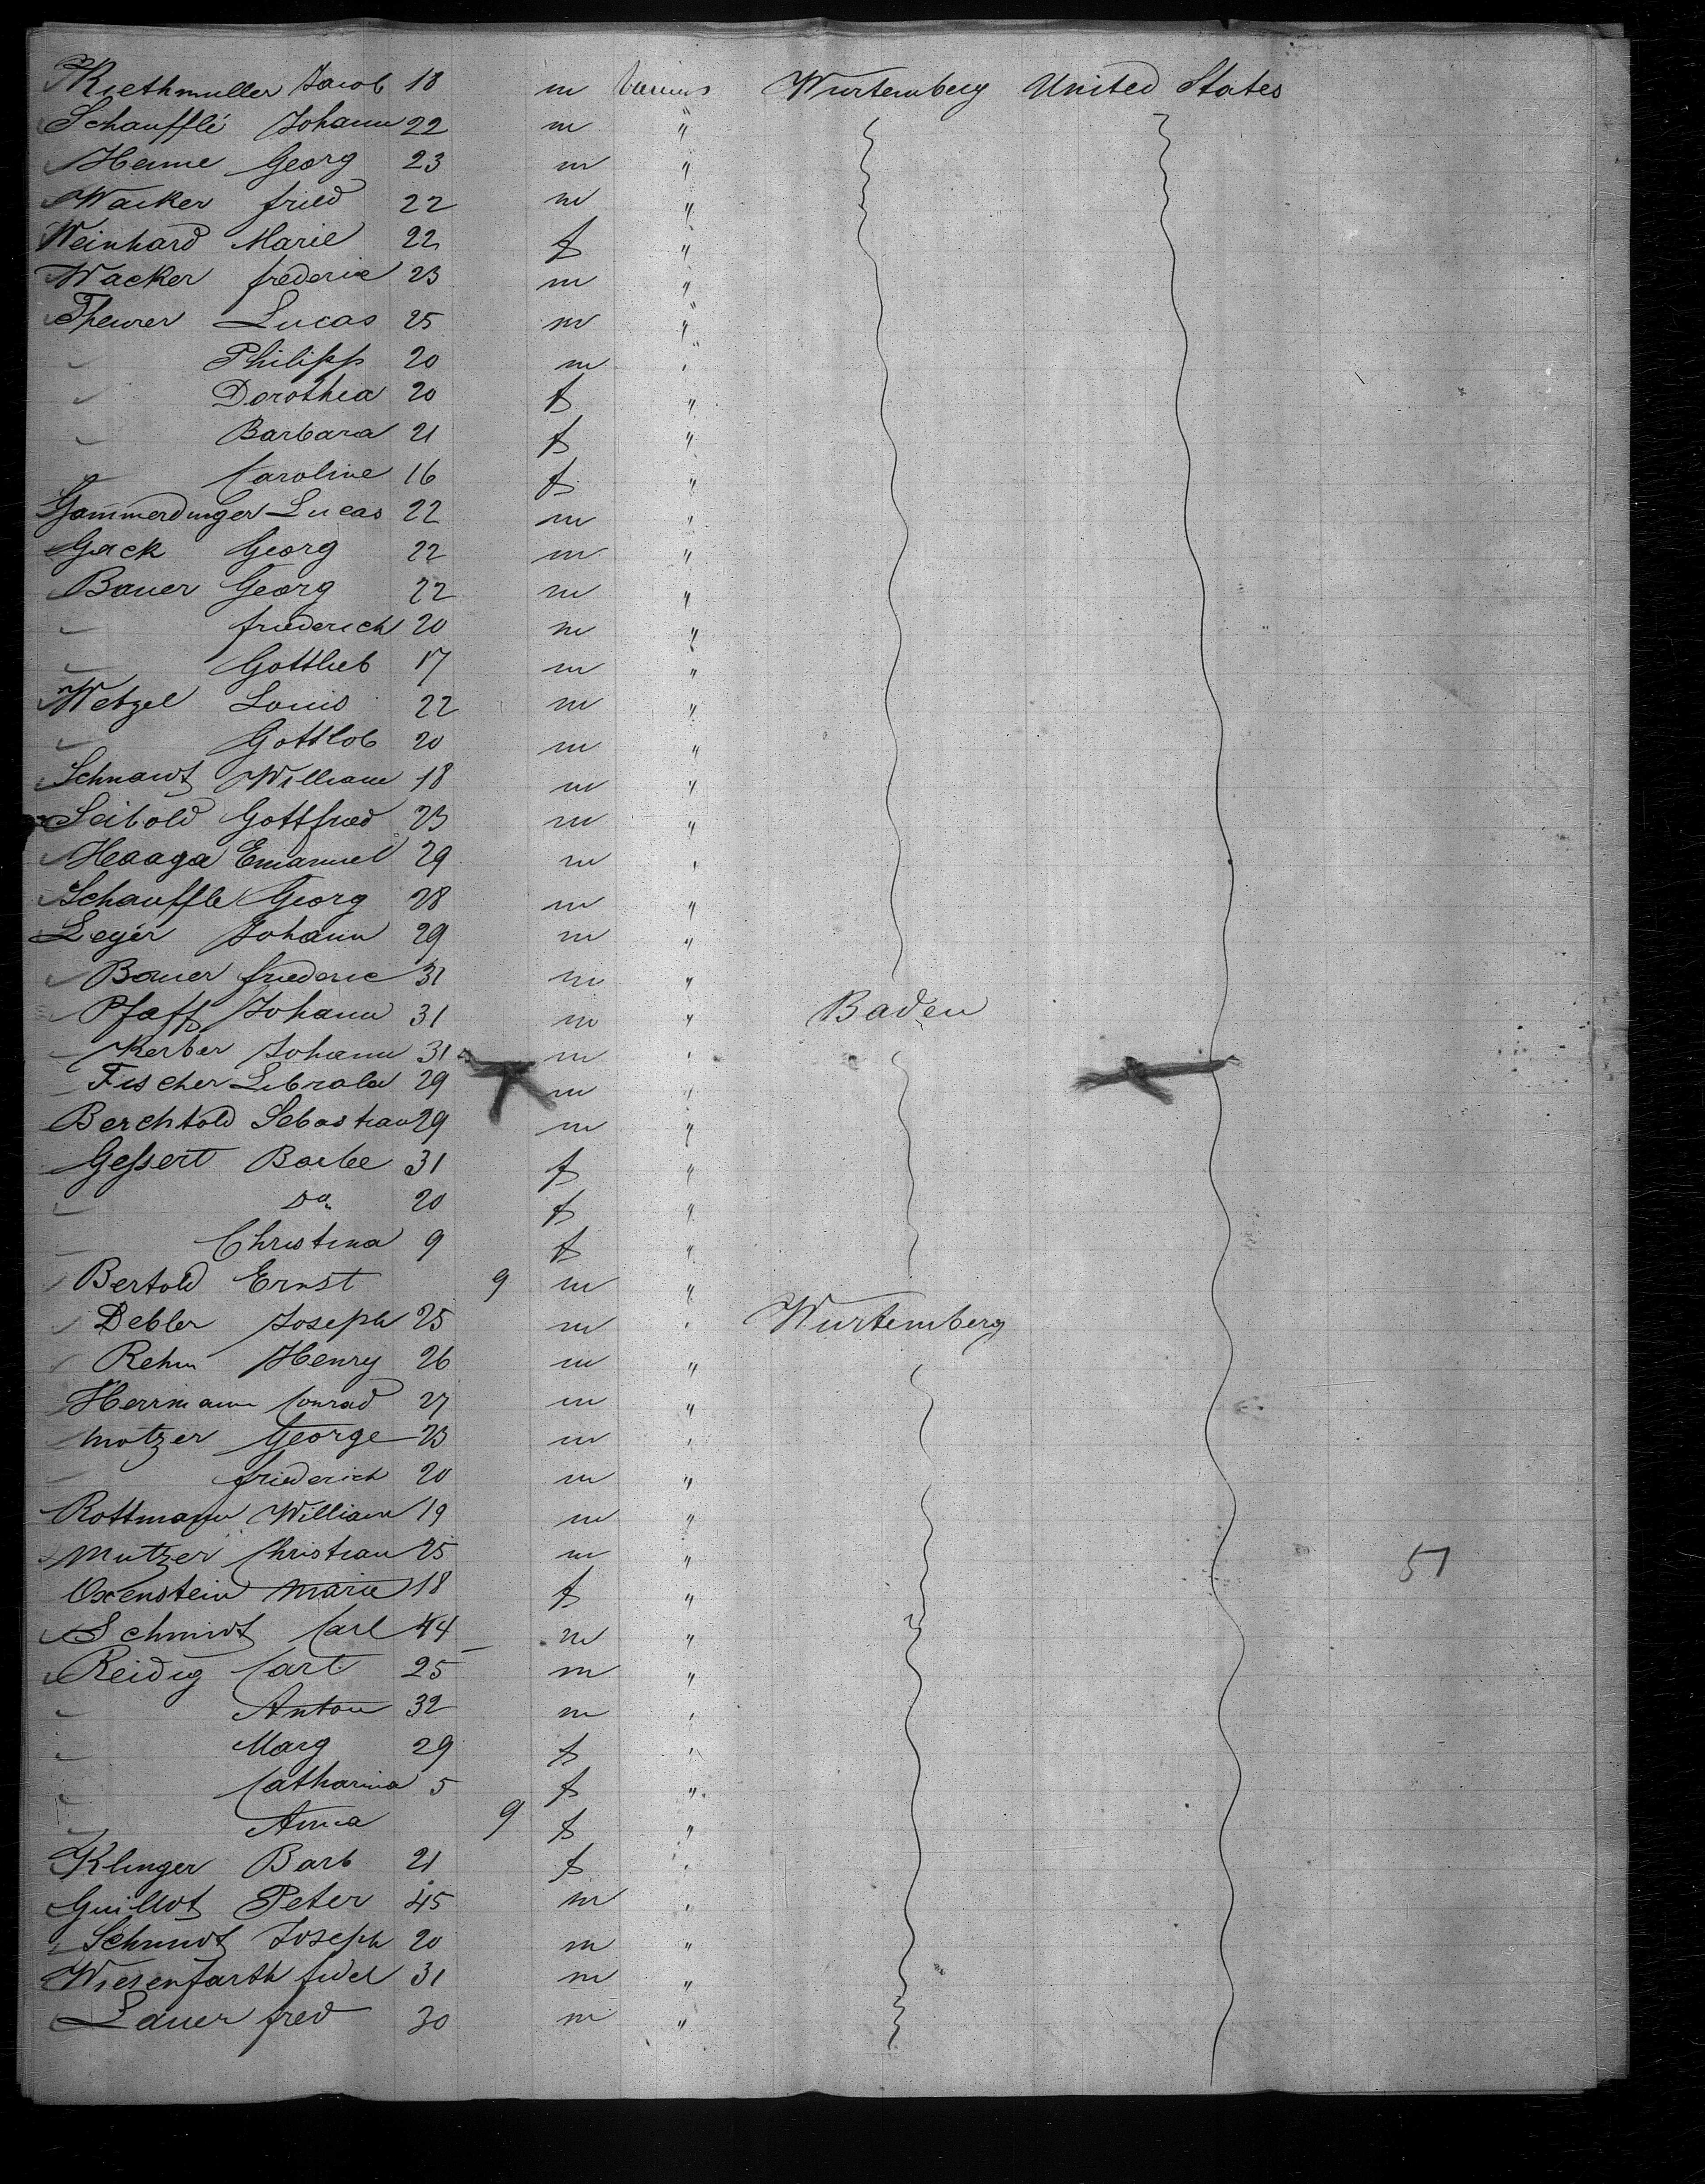 Riethmuller Jacob 18 m various Wurtemberg United States
Schaufflé Johann 22 m "
Henne Georg 23 m "
Wacker fried 22 m "
Weinhard Marie 22 f "
Wacker frederic 23 m "
Theurer Lucas 25 m "
" Philipp 20 m "
" Dorothea 20 f "
" Barbara 21 f "
" Caroline 16 f "
Gammerdinger Lucas 22 m "
Gack Georg 22 m "
Bauer Georg 22 m "
" friederich 20 m "
" Gottlieb 17 m "
Wetzel Louis 22 m "
" Gottlob 20 m "
William 18 m "
Seibold Gottfried 23 m "
Haaga Emanuel 29 m "
Schauffle Georg 28 m "
Leyér Johann 29 m "
Bauer friederic 31 m "
Pfaff Johann 31 m " Baden
Kerber Johann 31 m "
Fischer 29 m "
Berchtold Sebastian 29 m "
Gessert Barbe 31 f "
" Do 20 f "
" Christina 9 f "
Bertold Ernst 9 m "
Debler Joseph 25 m " Wurtemberg
Rehm Henry 26 m "
Herrmann Conrad 27 m "
Motzer George 23 m "
" friederich 20 m "
Rottmann William 19 m "
Mutzer Christian 25 m " 51
Oxenstein Marie 18 f "
Schmidt Carl 44 m "
Reidig Carl 25 m "
" Anton 32 m "
" Marg 29 f "
" Catharina 5 f "
" Anna 9 f "
Klinger Barb 21 f "
Guillot Peter 45 m "
Schmidt Joseph 20 m "
Wiesenfarth fidel 31 m "
Lauer fred 30 m "